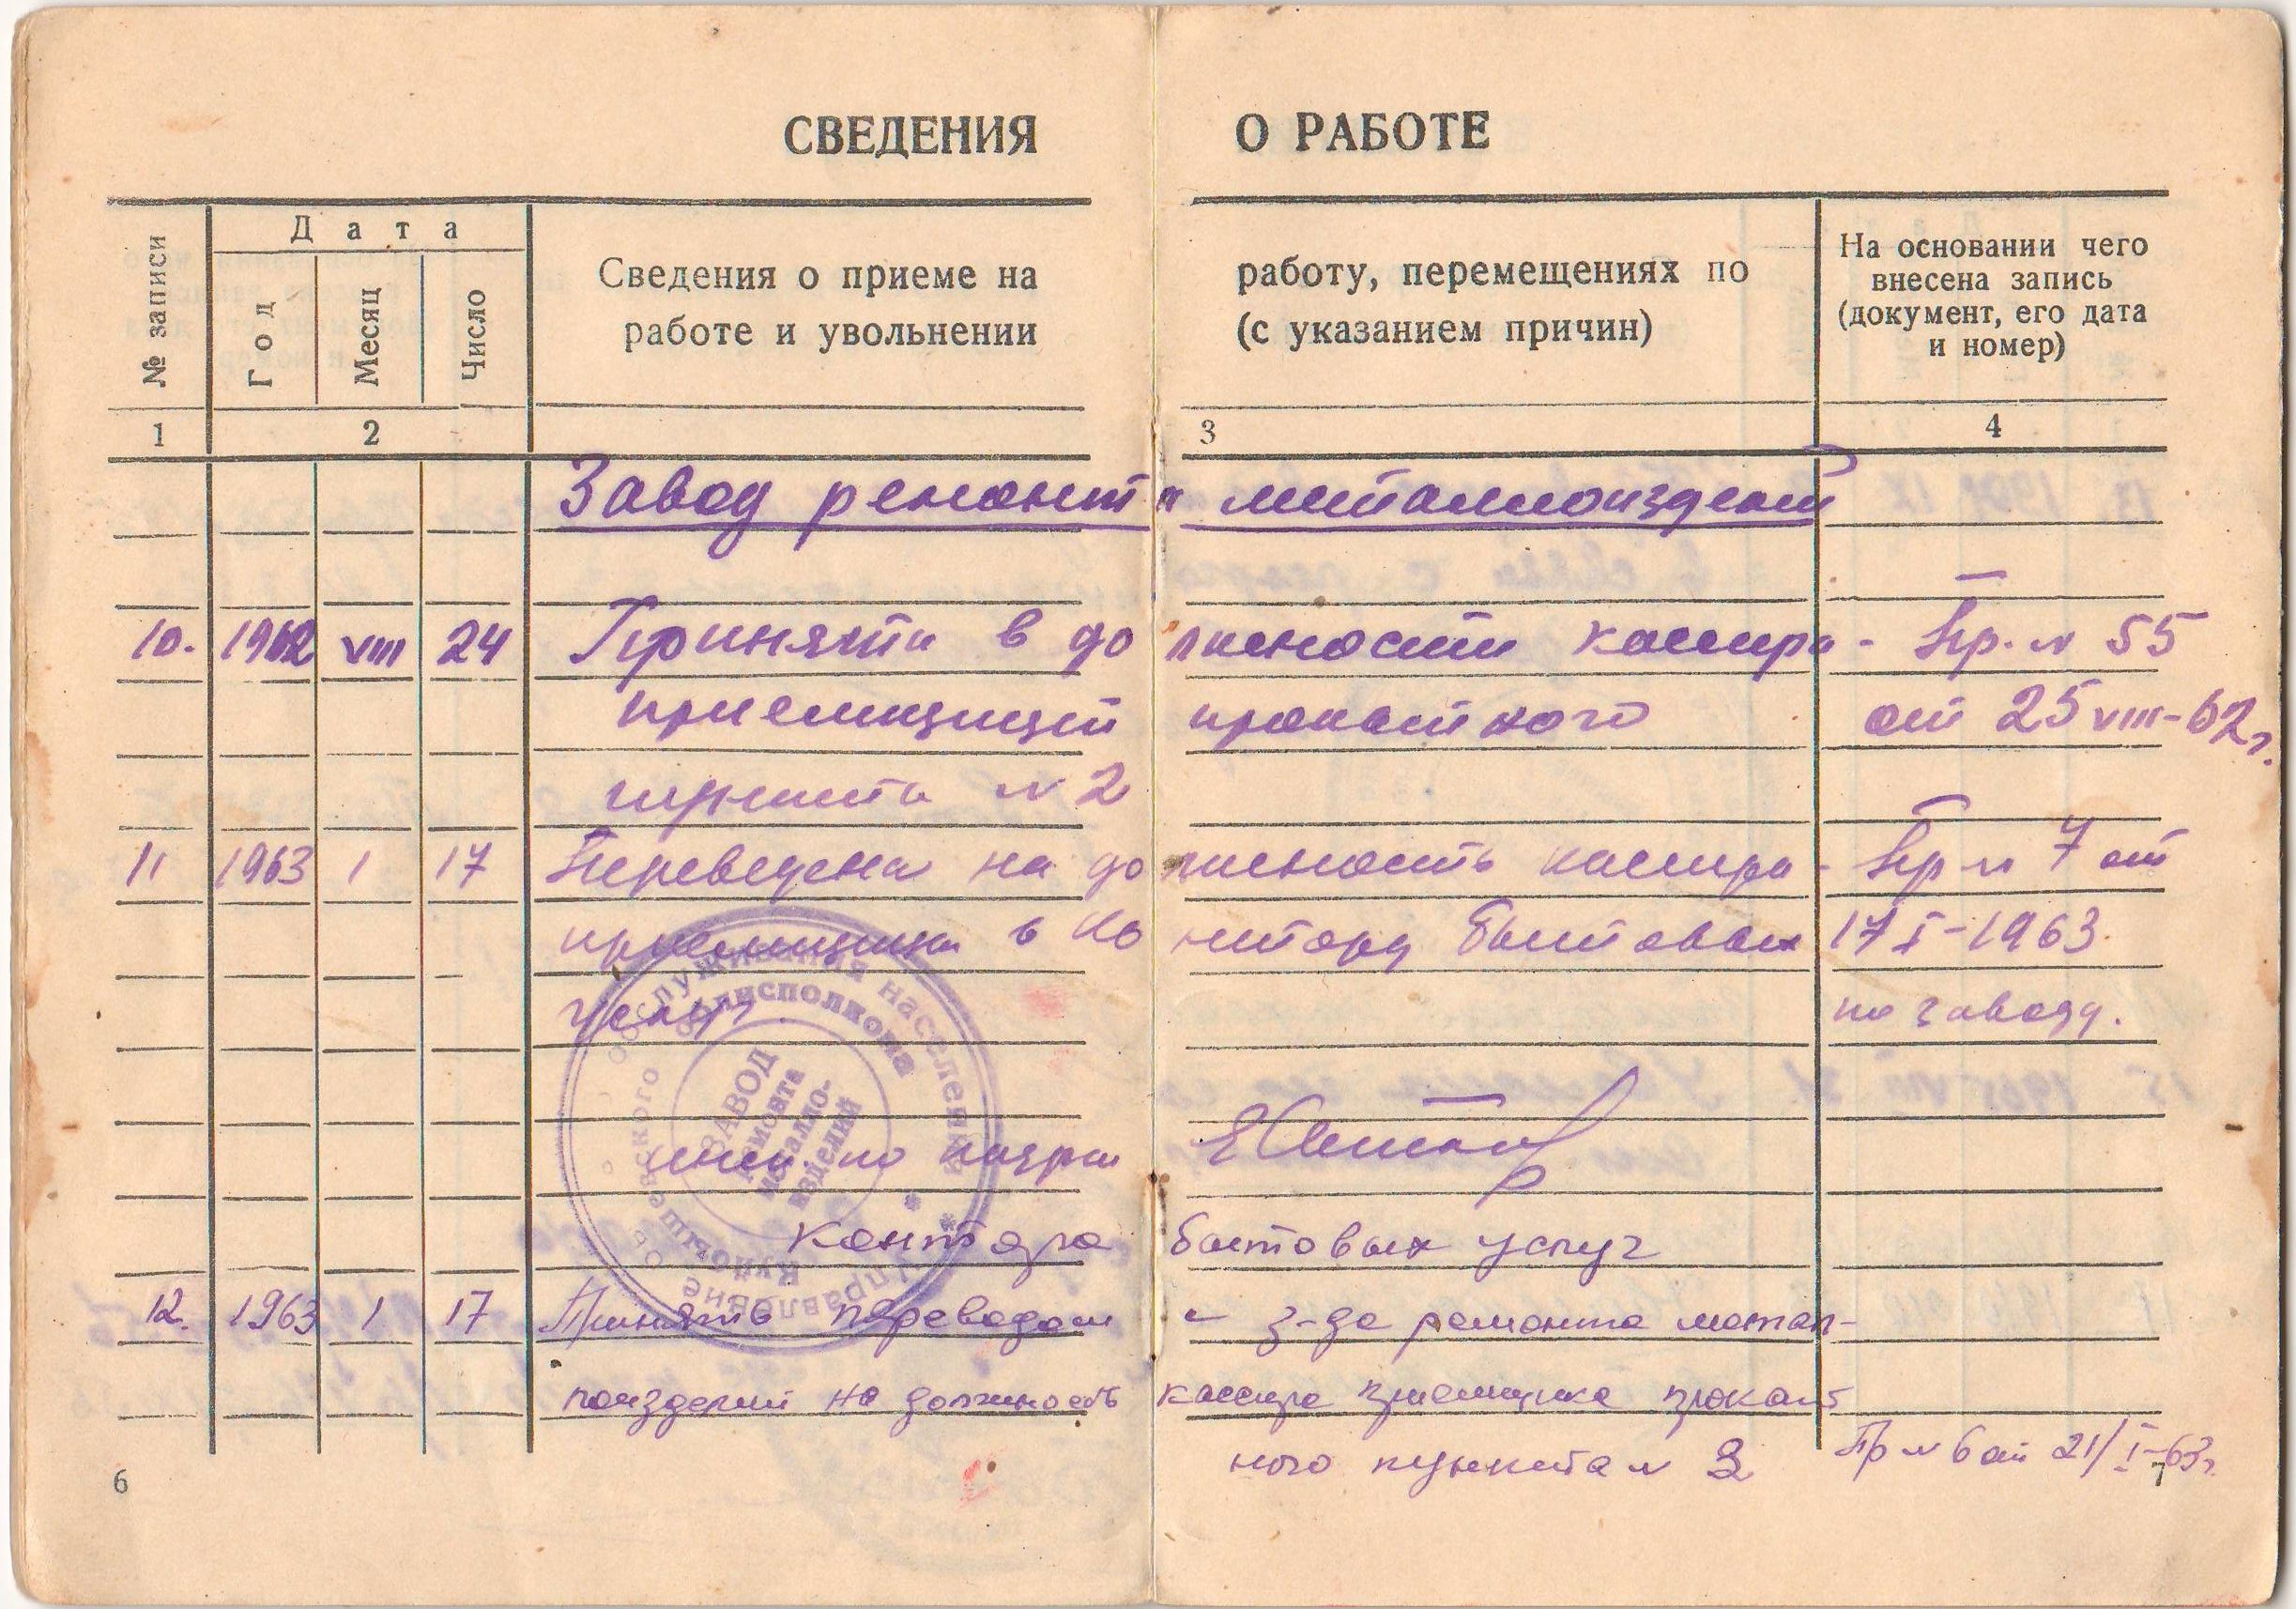 СВЕДЕНИЯ О РАБОТЕ
№ записи
Дата
Год
Месяц
Число
Сведения о приеме на работу, перемещениях по
работе и увольнении (с указанием причин)
На основании чего
внесена запись
(документ, его дата
и номер)
1 2 3 4
Завод ремонта металлоизделий
10. 1962 VIII 24 Принята в должности кассира- Пр. № 55
приемщицей прокатного от 25 VIII-62г.
пункта № 2
11 1963 1 17 Переведена на должность кассира- Пр № 7 от
приемщика в контору бытовых 17 I-1963.
услуг. по заводу.
Контора бытовых услуг
12. 1963 1 17 Принять переводом с з-да ремонта метал-
лоизделий на должность кассира приемщика прокат
ного пункта № 3 Пр № 6 от 21/I-63г.
обслуживания населения
облисполкома
ЗАВОД
ремонта
металло-
изделий
Куйбышевского
Управление
6
7